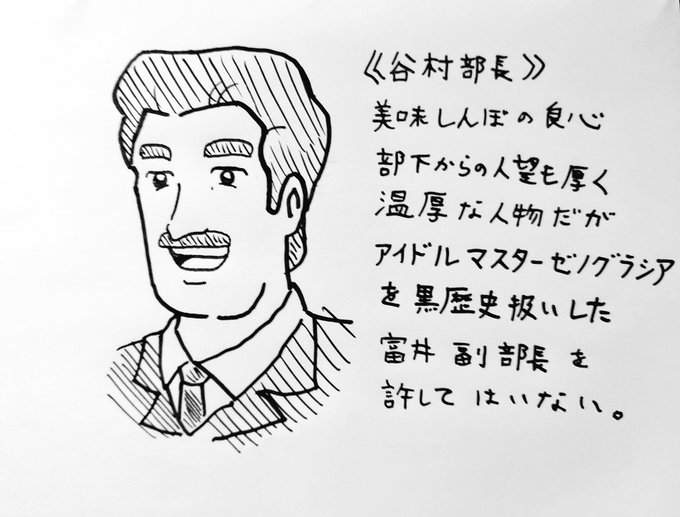 《谷村部長》
美味しんぼの良心
部下からの人望も厚く
温厚な人物だが
アイドルマスターゼノグラシア
を黒歴史扱いした
富井副部長を
許してはいない。